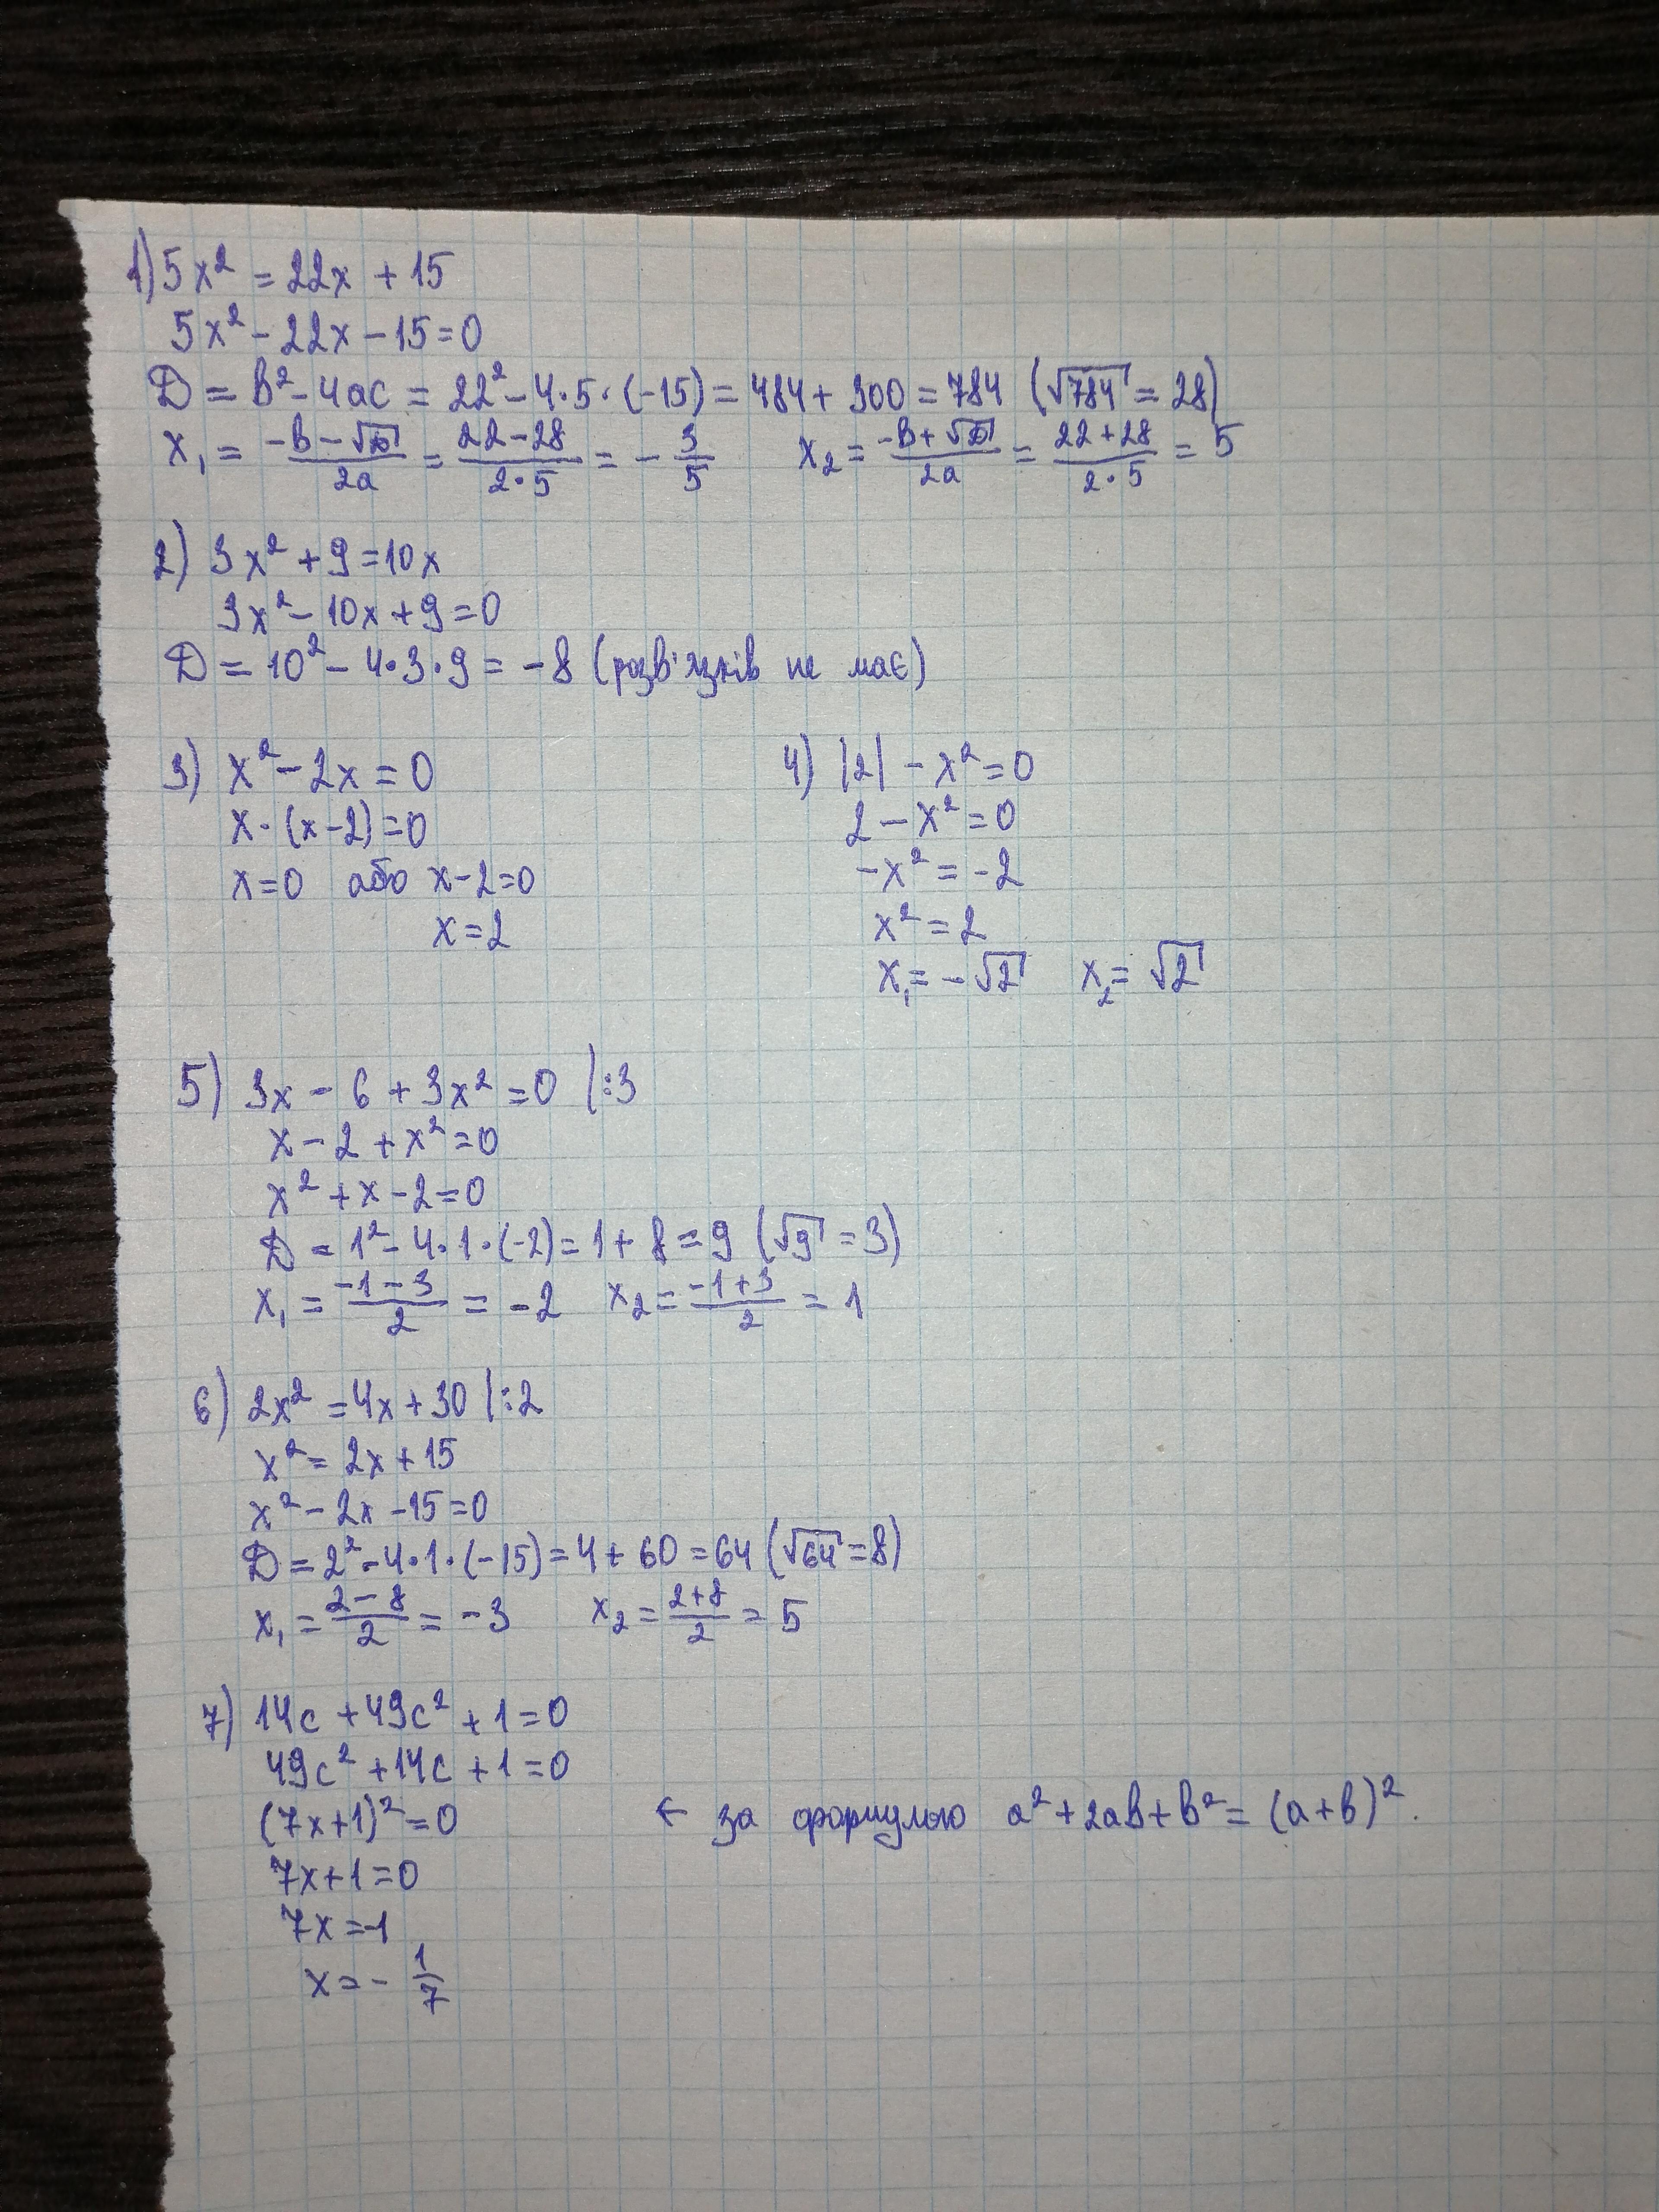 1) 5x² = 22x + 15
5x² - 22x - 15 = 0
D = b² - 4ac = 22² - 4·5·(-15) = 484 + 300 = 784 (√784 = 28)
x₁ = (-b - √D)/(2a) = (22 - 28)/(2·5) = -3/5 x₂ = (-b + √D)/(2a) = (22 + 28)/(2·5) = 5
2) 3x² + 9 = 10x
3x² - 10x + 9 = 0
D = 10² - 4·3·9 = -8 (розв'язків не має)
3) x² - 2x = 0
x·(x - 2) = 0
x = 0 або x - 2 = 0
x = 2
4) |2| - x² = 0
2 - x² = 0
-x² = -2
x² = 2
x₁ = -√2 x₂ = √2
5) 3x - 6 + 3x² = 0 |:3
x - 2 + x² = 0
x² + x - 2 = 0
D = 1² - 4·1·(-2) = 1 + 8 = 9 (√9 = 3)
x₁ = (-1 - 3)/2 = -2 x₂ = (-1 + 3)/2 = 1
6) 2x² = 4x + 30 |:2
x² = 2x + 15
x² - 2x - 15 = 0
D = 2² - 4·1·(-15) = 4 + 60 = 64 (√64 = 8)
x₁ = (2 - 8)/2 = -3 x₂ = (2 + 8)/2 = 5
7) 14c + 49c² + 1 = 0
49c² + 14c + 1 = 0
(7x + 1)² = 0 ← за формулою a² + 2ab + b² = (a + b)².
7x + 1 = 0
7x = -1
x = -1/7